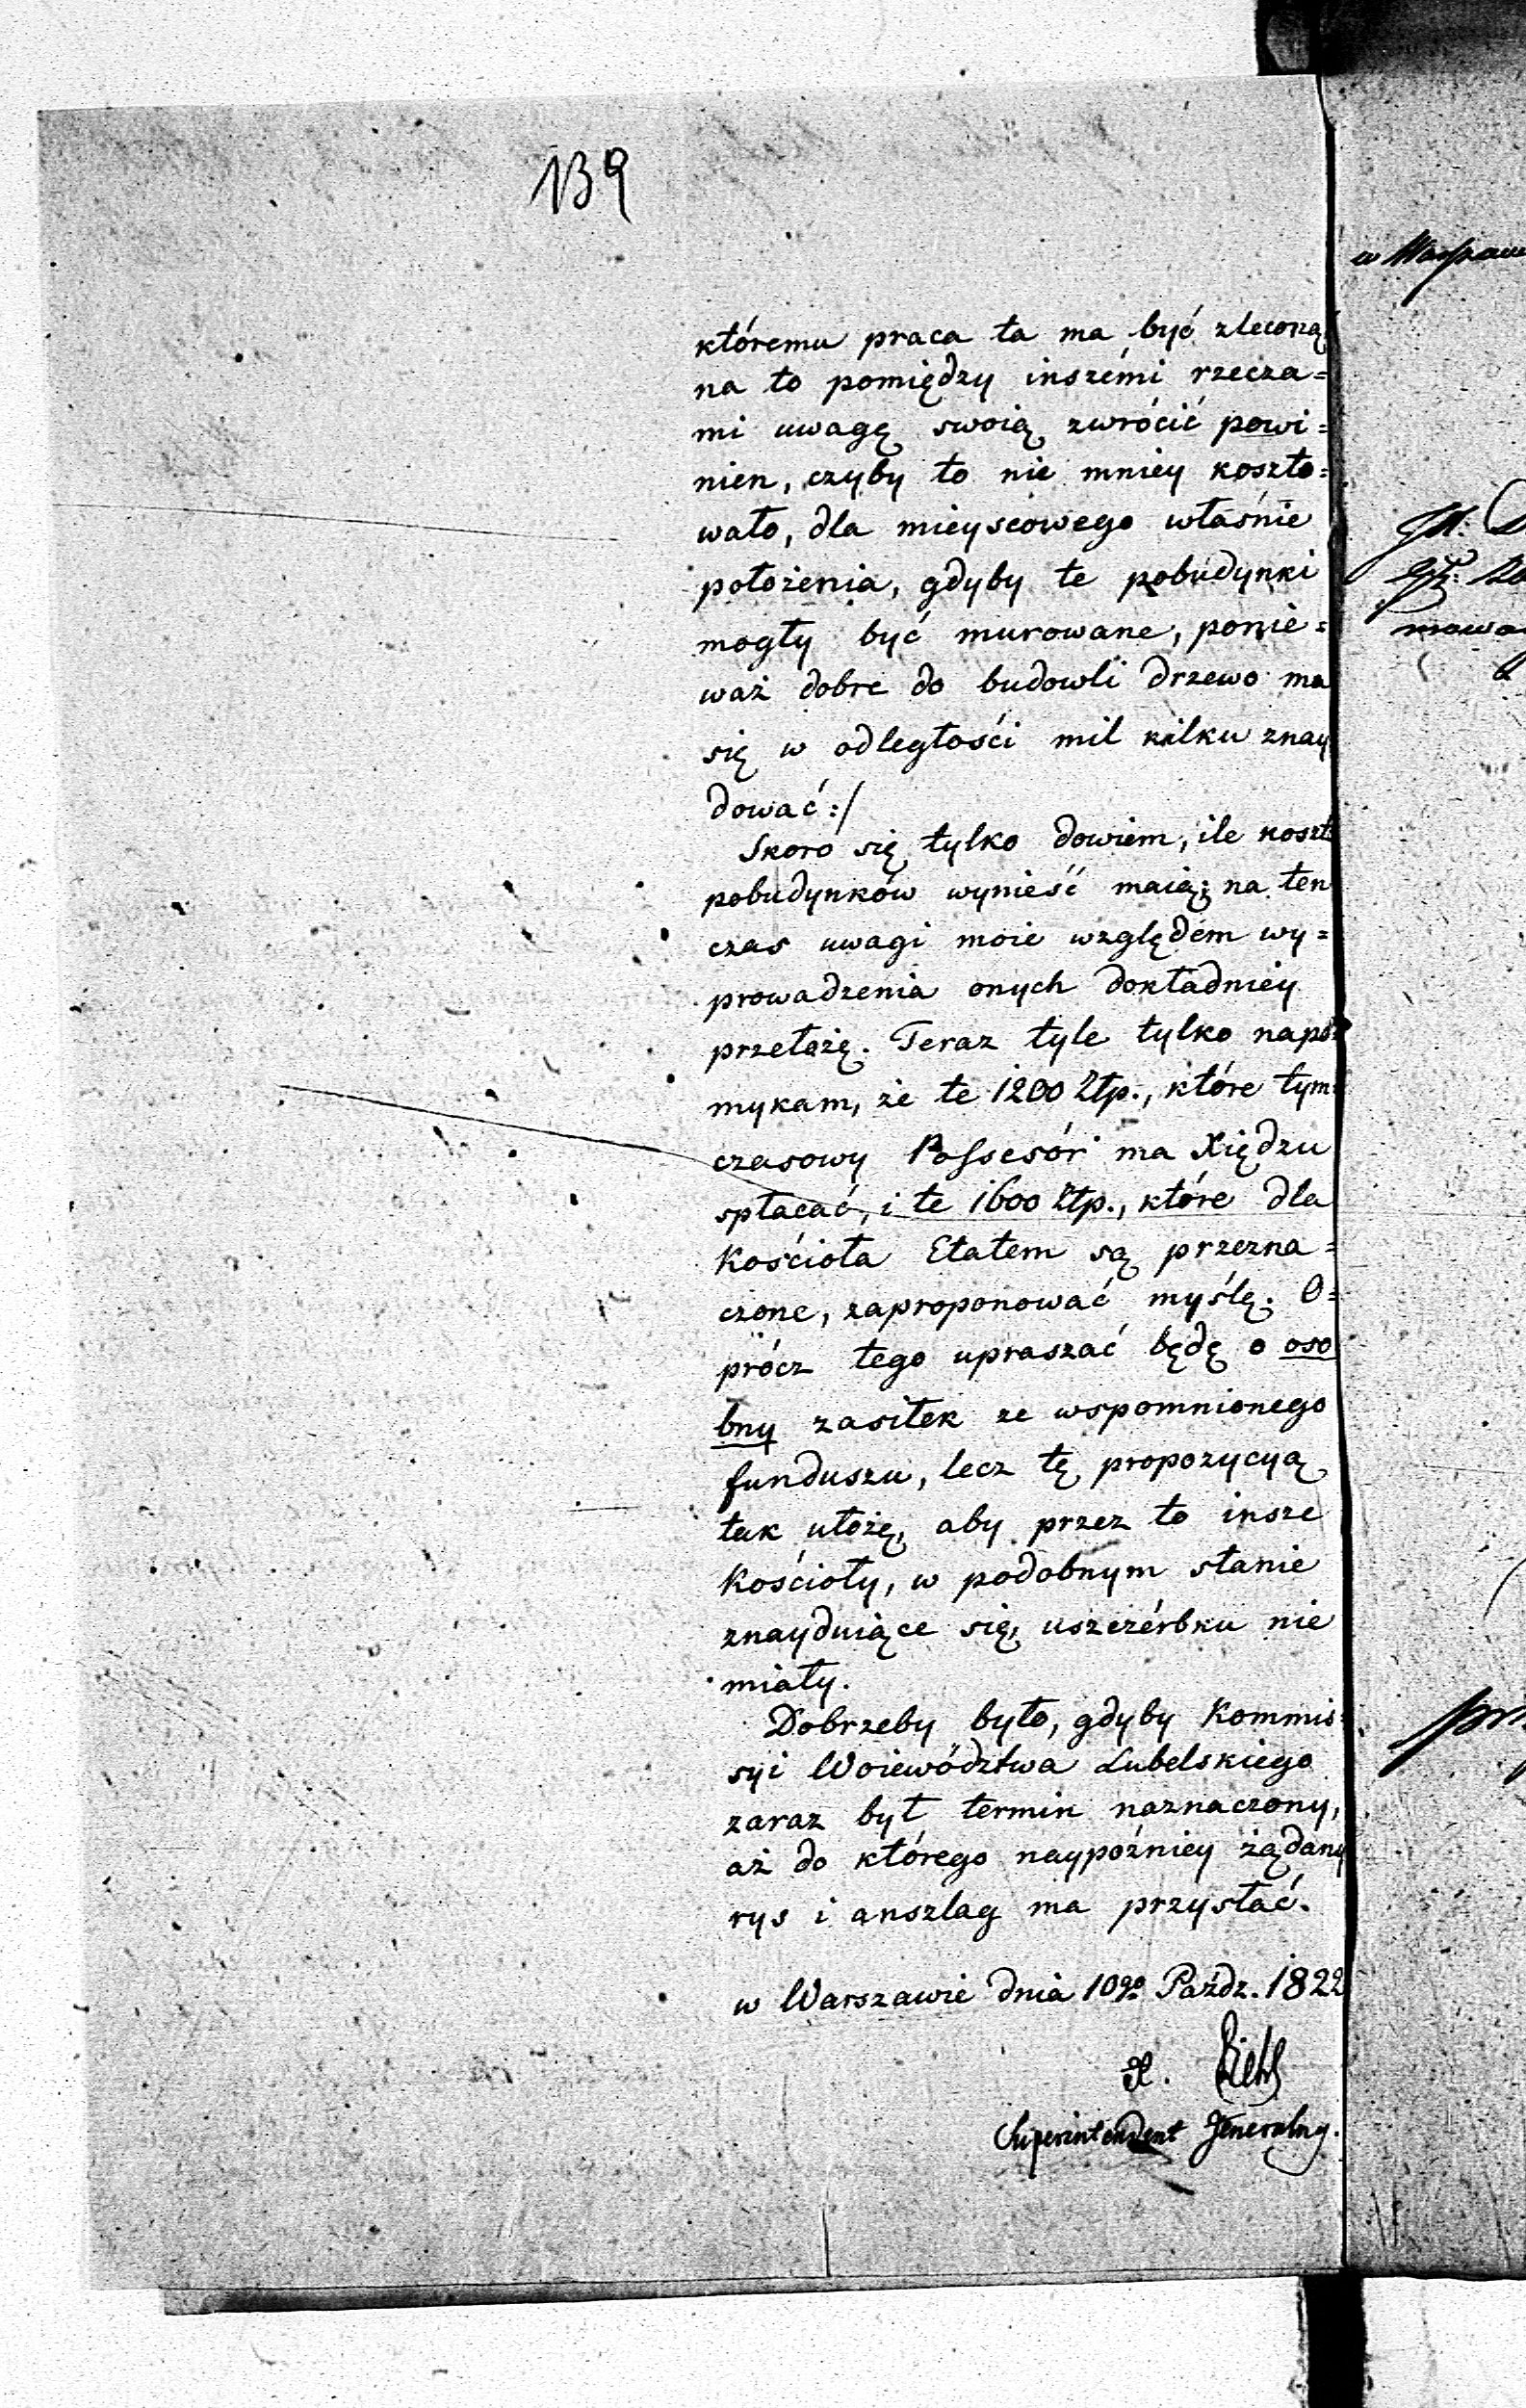 139
któremu praca ta ma być zleconą
na to pomiędzy inszémi rzecza=
mi uwagę swoią zwrócić powi=
nien, czyby to nie mniey koszto=
wało, dla mieyscowego właśnie
położenia, gdyby te pobudynki
mogły być murowane, ponie=
waż dobre do budowli drzewo ma
się w odległości mil kilku znay
dować:/
Skoro się tylko dowiem, ile koszt
pobudynków wynieść maią; na ten
czas uwagi moie względem wy=
prowadzenia onych dokładniey
przełożę. Teraz tyle tylko napo=
mykam, że te 1200 Złp., które tym=
czasowy Possesór ma Xiędzu
spłacać, i te 1600 Złp., które dla
Kościoła Etatem są przezna=
czone, zaproponować myślę. O=
prócz tego upraszać będę o oso
bny zasiłek ze wspomnionego
funduszu, lecz tę propozycyą
tak ułożę, aby przez to insze
Kościoły, w podobnym stanie
znayduiące się, uszczérbku nie
miały.
Dobrzeby było, gdyby Kommis=
syi Woiewództwa Lubelskiego
zaraz był termin naznaczony,
aż do którego naypóźniey żądany
rys i anszlag ma przysłać.
w Warszawie dnia 10go Paźdz. 1822
X. Diehl
Superintendent Generalny.
w Warszaw